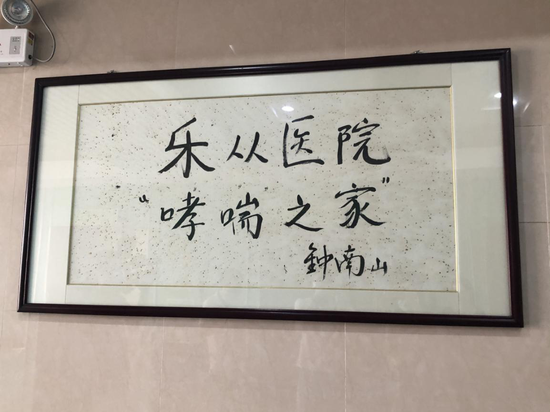 乐从医院
“哮喘”之家”
鈡南山